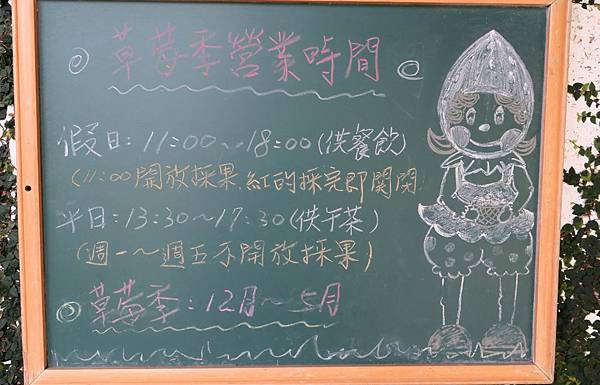 草莓季營業時間
假日:11:00~18:00(供餐飲)
(11:00開放採果.紅的採完即關閉
平日:13:30~17:30(供午茶)
(週一~週五不開放採果)
草莓季:12月~5月